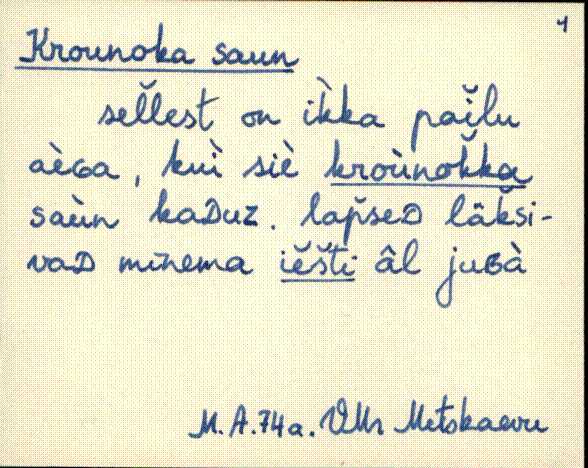 4
Krounoka saun
sel̆lest on ik̀ka pai�lou
aèGa, kuì siè kroùnok̆ka
saùn kaDuz. lap̆seD lâk̆si-
vaD minema iĕs̆ti âl juBà
M.A.74a. VMr Metskaevu